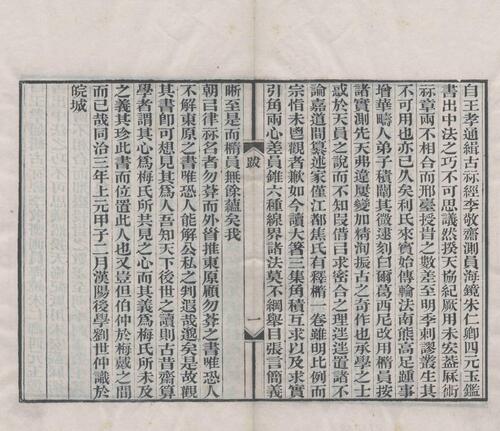 自王孝通緝古祘經李敬齋測員海鏡朱仁卿四元玉鑑
書出中法之巧不可思議然揆天協紀厥用未安葢厤術
祘章兩不相合而邢臺授旹之數差至明季刺謬叢生其
不可用也亦已久矣利氏來賓始傳輸法南熊高足踵事
增華疇人弟子積鬭其微逮刻白爾葛西尼改用橢員按
諸實測先天弗違屢變加精洵振古之奇作也承學之士
或於天員之說而不知叚借㠯求密合之理迻置諸不
論嘉道閒纂述家僅江都焦氏有釋橢一卷雖明比例而
宗恉未鬯觀者歉如今讀大箸三集角積互求以及求實
引角兩心差員錐六種線界諸法莫不綱舉目張言簡義
跋
一
晰至是而橢員無餘蘊矣我
朝㠯律祘名者勿菴而外晉推東原顧勿菴之書唯恐人
不解東原之書唯恐人能解公私之判遐哉邈矣是故觀
其書卽可想見其爲人吾知天下後世之讀則古昔齋算
學者謂其心爲梅氏所共見之心而其義爲梅氏所未及
之義其珍此書而位置此人也又豈但伯仲於梅戴之閒
而已哉同治三年上元甲子二月漢陽後學劉世仲識於
皖城